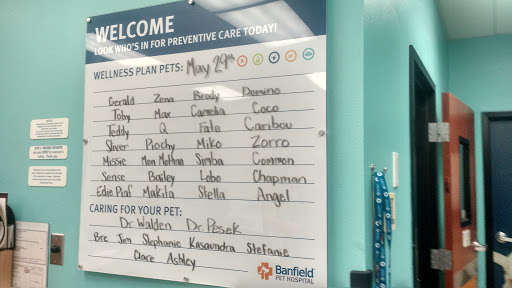 WELCOME
LOOK WHO'S IN FOR PREVENTIVE CARE TODAY!
WELLNESS PLAN PETS: May 29th
Gerald Zena Brody Domino
Toby Max Camelia Coco
Teddy Q Fale Caribou
Sliver Piochy Miko Zorro
Missie Mon Mothma Simba Common
Sense Bailey Lobo Chapman
Edie Piaf Makila Stella Angel
CARING FOR YOUR PET:
Dr Walden Dr Pesek
Bre Jim Stephanie Kasaundra Stefanie
Clare Ashley
Banfield
PET HOSPITAL